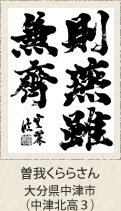 則燕雖
無齊
曽我くららさん
大分県中津市
（中津北高３）